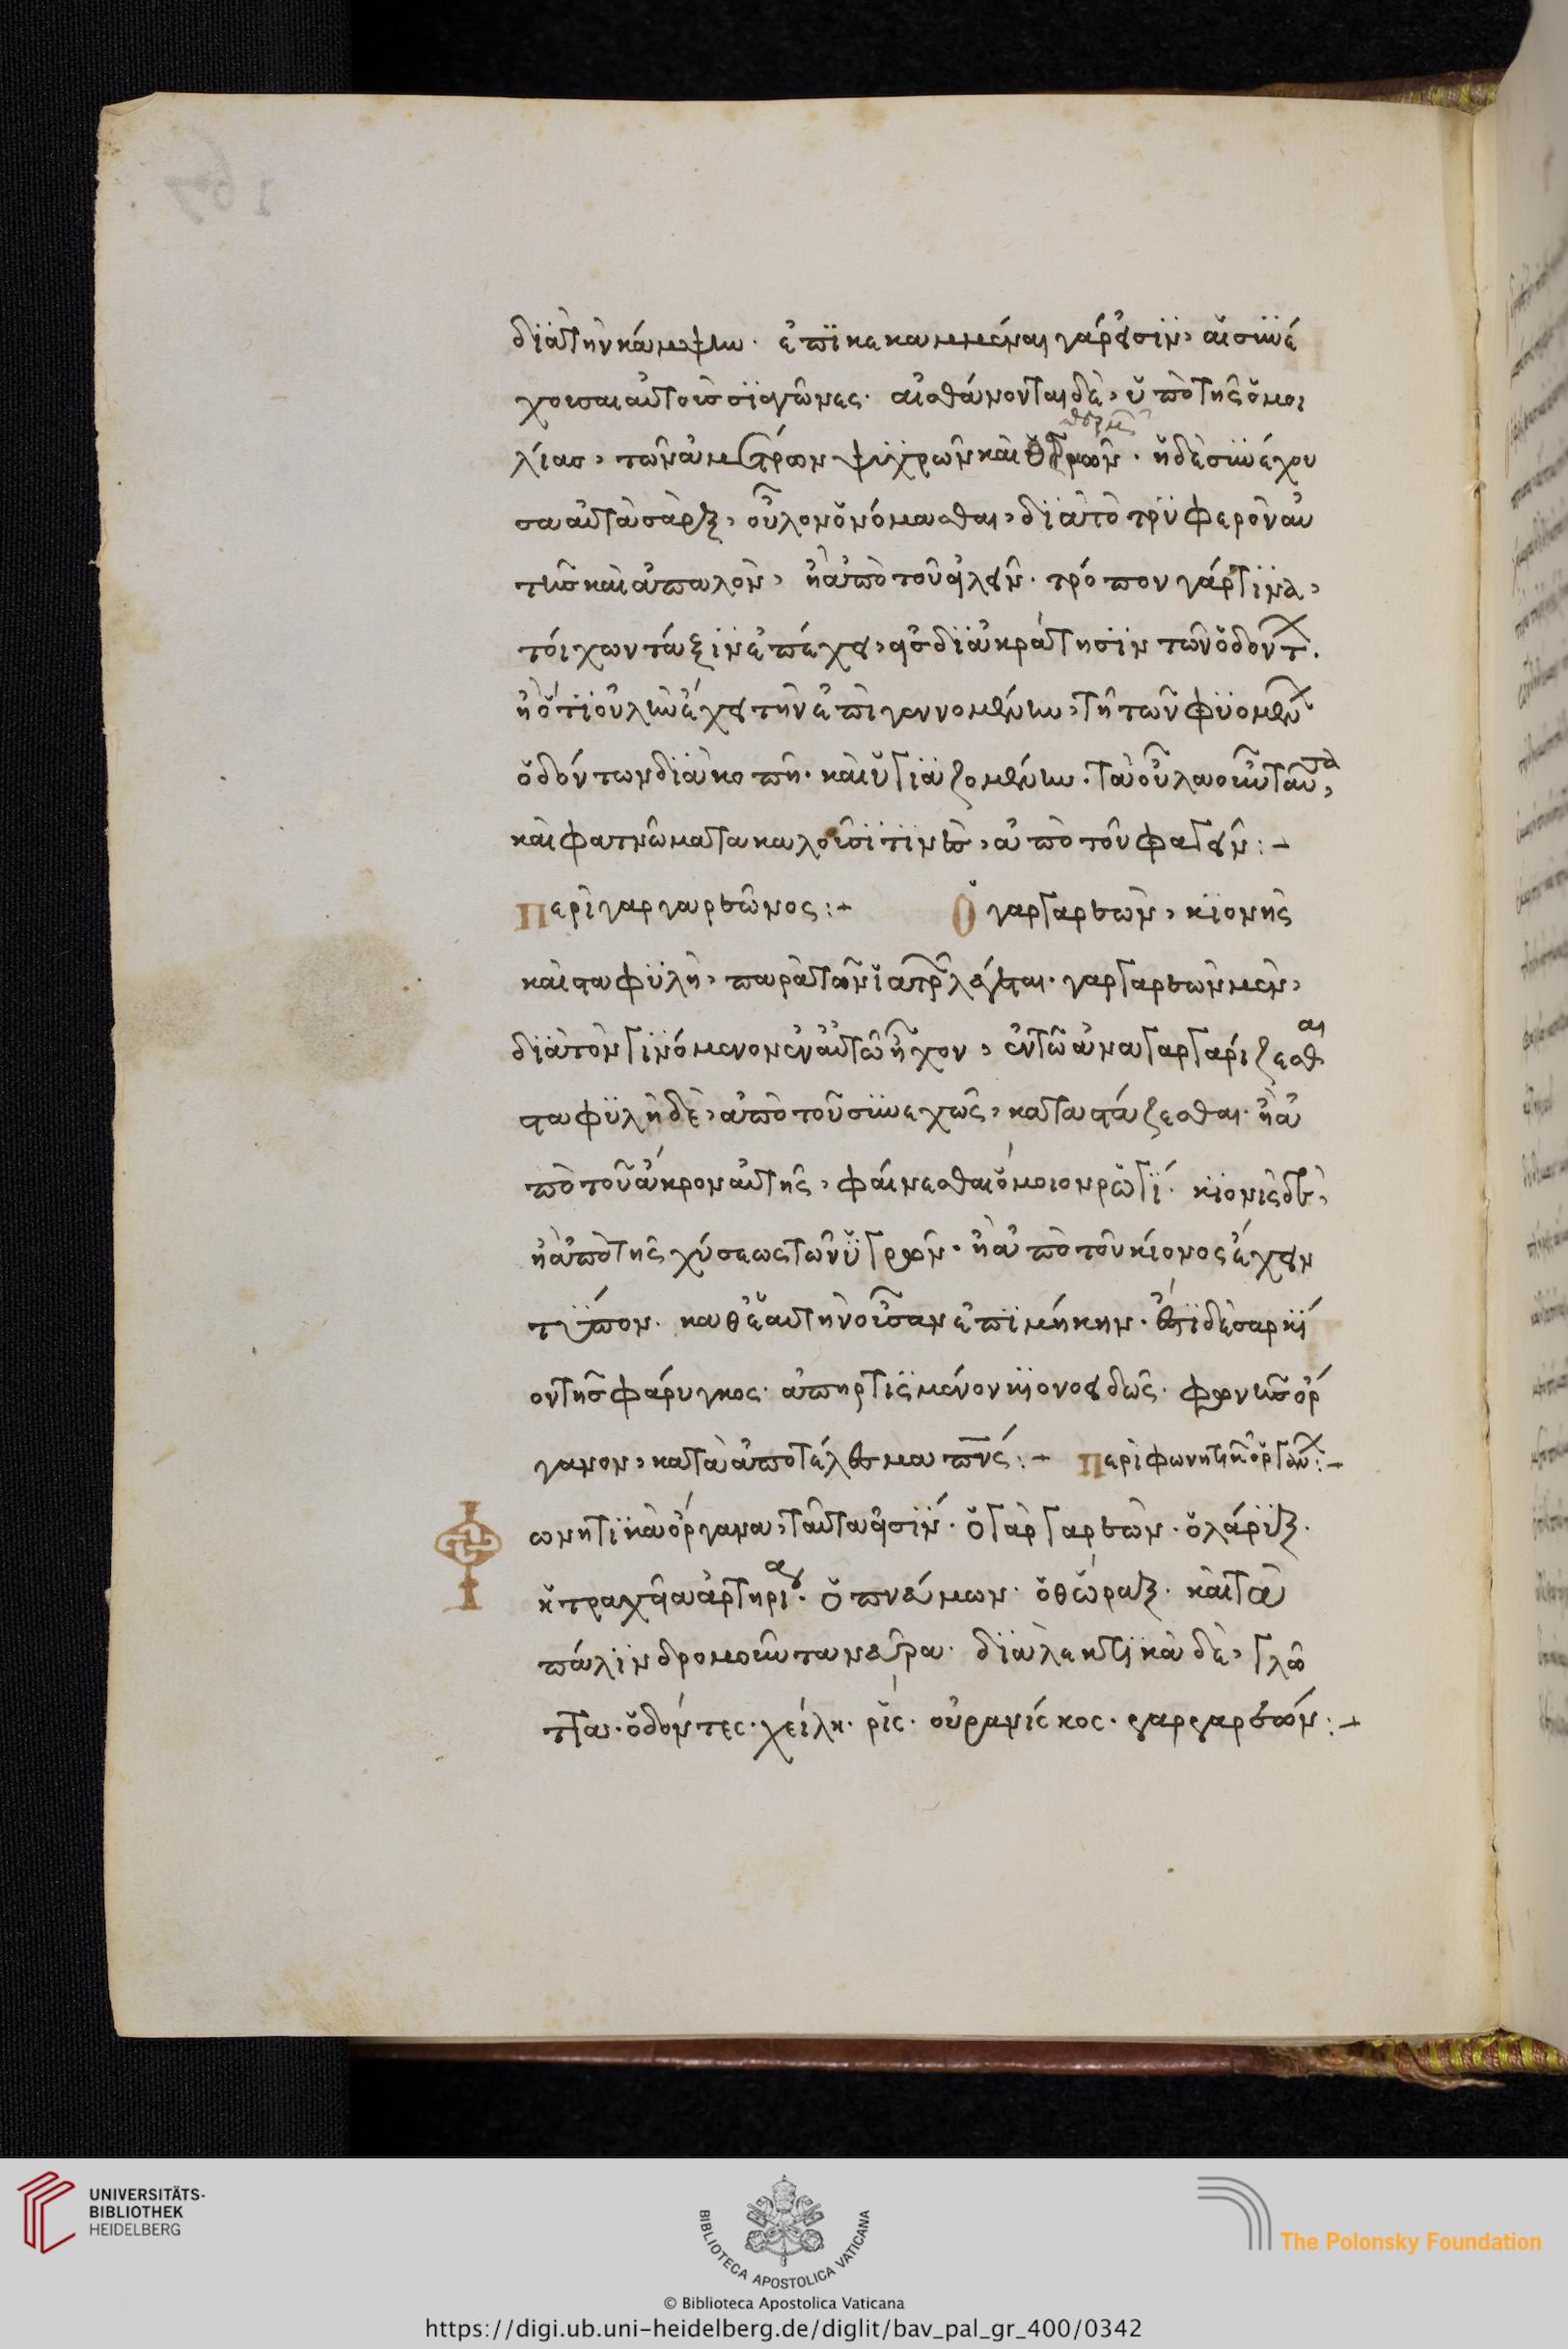 διὰ τὴν κάμψιν. ἐπικεκαμμέναι γάρ εἰσιν, αἱ συνέ
χουσαι αὐτοὺς σιαγῶνες. αἰσθάνονται δὲ, ὑπὸ τῆς ὁμοι
λίας, τῶν ἀμετρων ψυχρῶν καὶ ὑγρῶν. ἡ δὲ συνέχου
σα αὐτὰ σὰρξ, οὖλον ὀνόμασθαι, διὰ τὸ τρυφερὸν αὐ
τῆς καὶ ἁπαλὸν, ἢ ἀπὸ τοῦ εἰλεῖν. τρόπον γάρ τινα,
τοίχων τάξιν ἐπέχει, εἰς διακράτησιν τῶν ὀδόντων.
ἢ ὅτι οὐλὴν ἔχει τὴν ἐπιγεννομένην, τῇ τῶν φυομένων
ὀδόντων διακοπῇ. καὶ ὑγιαζομένην. τὰ οὖλα οὖν ταῦτα,
καὶ φατνώματα καλοῦσί τινες, ἀπὸ τοῦ φαγεῖν:-
Περὶ γαργαρεῶνος:- Ὁ γαργαρεὼν, κιονὶς
καὶ σταφυλὴ, παρὰ τῶν ἰατρῶν λέγεται. γαργαρεὼν μὲν,
διὰ τὸν γινόμενον ἐν αὐτῷ ἦχον, ἐν τῷ ἀναγαργαρίζεσθαι
σταφυλὴ δὲ, ἀπὸ τοῦ συνεχῶς, καταστάζεσθαι. ἢ ἀ
πὸ τοῦ ἄκρον αὐτῆς, φαίνεσθαι ὅμοιον ῥωγί. κιονὶς δὲ,
ἢ ἀπὸ τῆς χύσεως τῶν ὑγρῶν. ἢ ἀπὸ τοῦ κίονος ἔχειν
τύπον. καθ ἑαυτὴν οὖσαν ἐπιμήκην. ἔστι δὲ σαρκί
ον τῆς φάρυγκος. ἀπηρτισμένον κιονοειδῶς. φωνῆς ὄρ
γανον, κατὰ ἀποτέλεσμα πνς:- Περὶ φωνητικῶν ὀργάνων:-
Φωνητικὰ ὄργανα, ταῦτα εἰσίν. ὁ γαργαρεὼν. ὁ λάρυξ.
ἡ τραχεῖα ἀρτηρία. ὁ πνεύμων. ὁ θώραξ. καὶ τὰ
παλινδρομοῦντα νεῦρα. διαλεκτικὰ δὲ, γλῶ
τται. ὀδόντες. χείλη. ῥίς. οὐρανίσκος. γαργαρεών:-
UNIVERSITÄTS-
BIBLIOTHEK
HEIDELBERG
BIBLIOTECA APOSTOLICA VATICANA
The Polonsky Foundation
© Biblioteca Apostolica Vaticana
https://digi.ub.uni-heidelberg.de/diglit/bav_pal_gr_400/0342